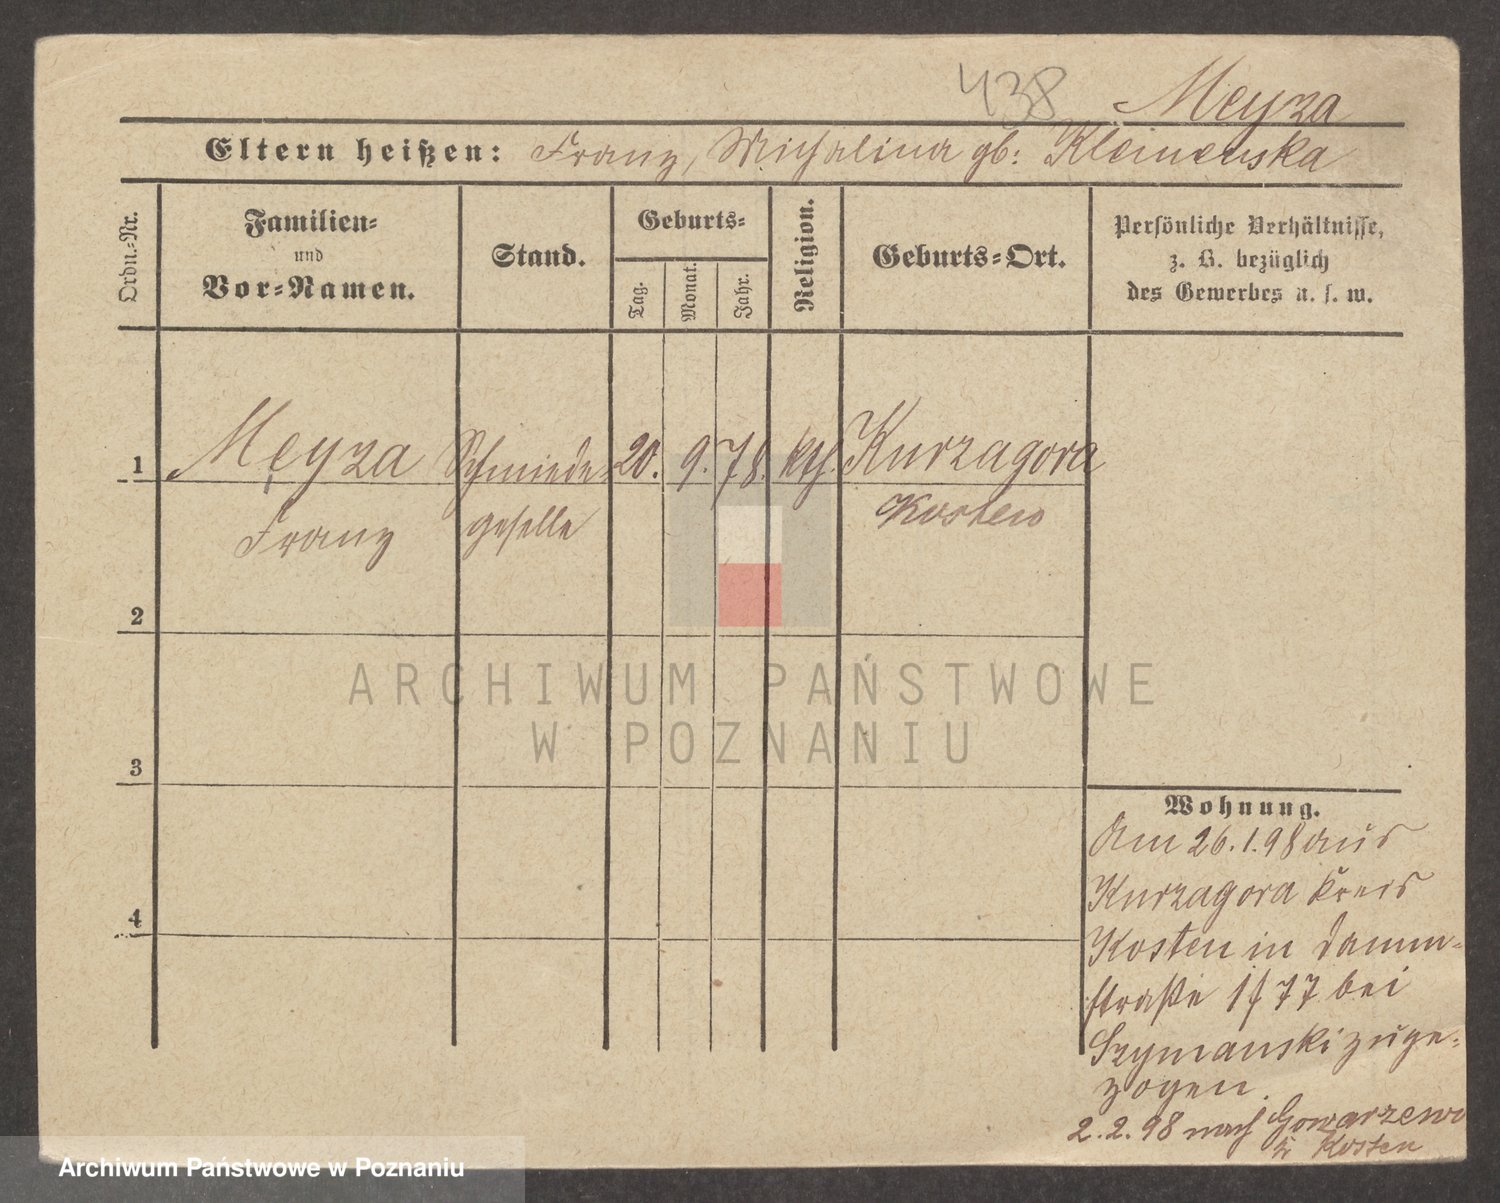 438 Meyza
Eltern heißen: Franz, Michalina gb: Kleinewska
Ordn.-Nr.
Familien-
und
Vor-Namen.
Stand.
Geburts-
Tag.
Monat.
Jahr.
Religion.
Geburts-Ort.
Persönliche Verhältnisse,
z. B. bezüglich
des Gewerbes u. s. w.
1 Meyza Schmiede 20. 9. 78. kth. Kurzagora
Franz geselle Kosten
2
3
4
ARCHIWUM PAŃSTWOWE
W POZNANIU
Wohnung.
Am 26.1.98 aus
Kurzagora Kreis
Kosten in Damm-
straße 1/77 bei
Szymanski zuge-
zogen.
2.2.98 nach Gowarzewo
Kosten
Archiwum Państwowe w Poznaniu